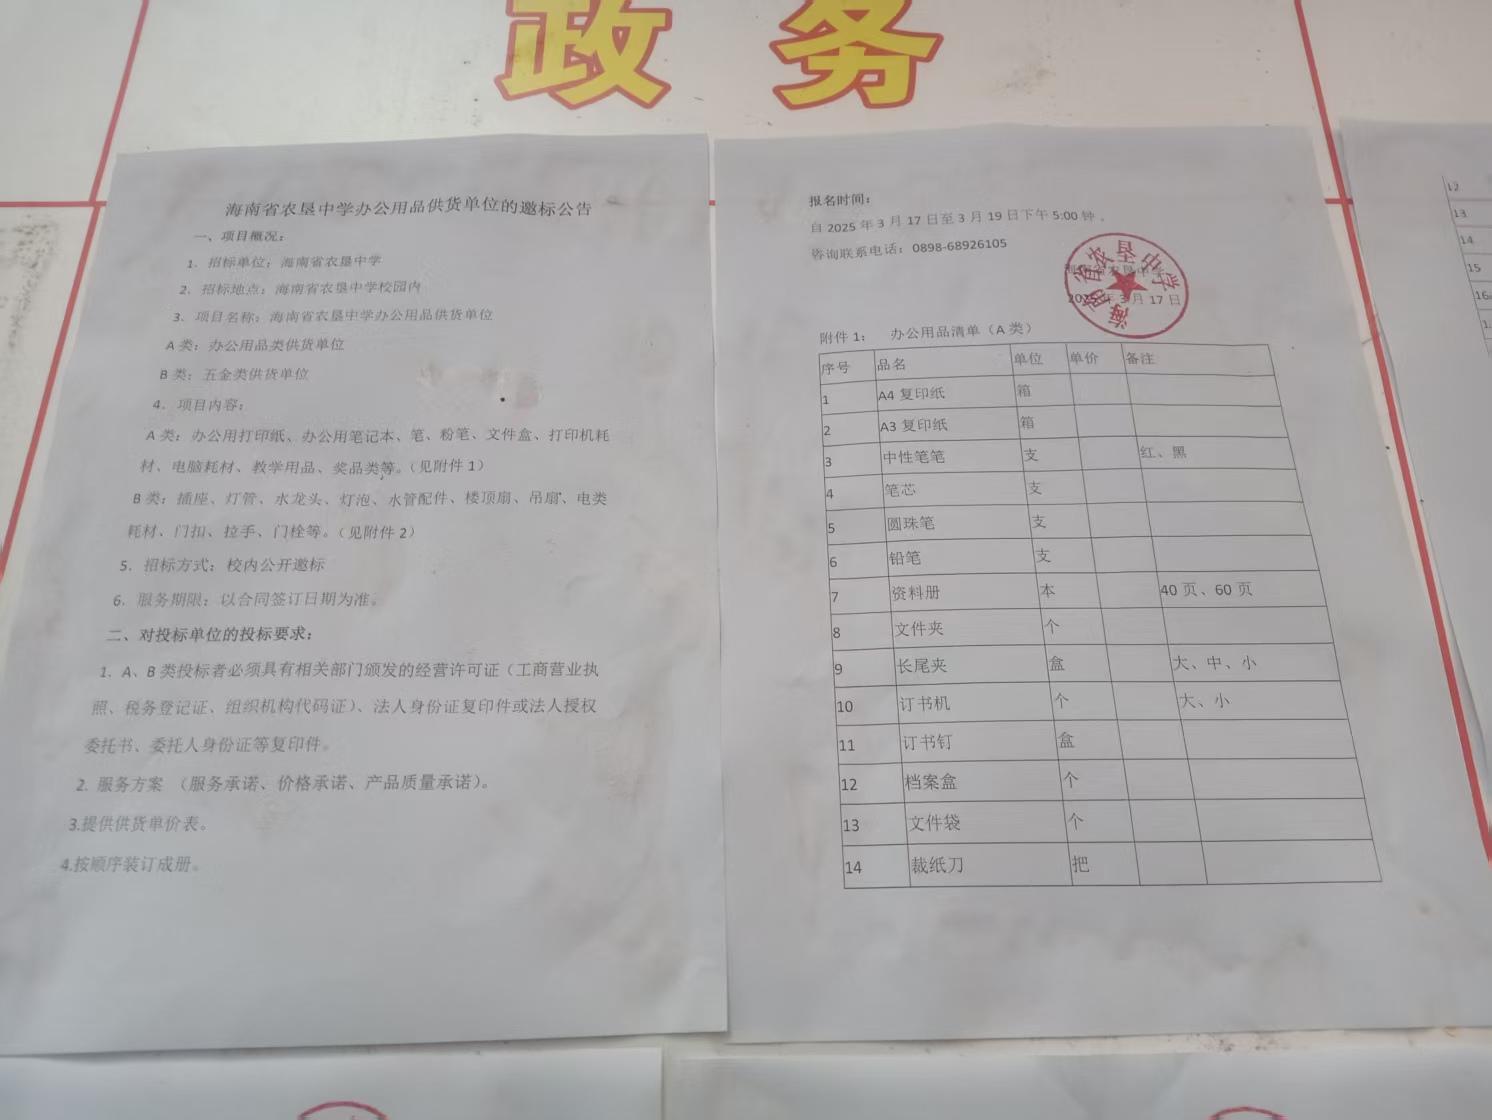 政 务
海南省农垦中学办公用品供货单位的邀标公告
一、项目概况：
1. 招标单位：海南省农垦中学
2. 招标地点：海南省农垦中学校园内
3. 项目名称：海南省农垦中学办公用品供货单位
A 类：办公用品类供货单位
B 类：五金类供货单位
4. 项目内容：
A 类：办公用打印纸、办公用笔记本、笔、粉笔、文件盒、打印机耗
材、电脑耗材、教学用品、奖品类等。（见附件 1）
B 类：插座、灯管、水龙头、灯泡、水管配件、楼顶扇、吊扇、电类
耗材、门扣、拉手、门栓等。（见附件 2）
5. 招标方式：校内公开邀标
6. 服务期限：以合同签订日期为准。
二、对投标单位的投标要求：
1. A、B 类投标者必须具有相关部门颁发的经营许可证（工商营业执
照、税务登记证、组织机构代码证）、法人身份证复印件或法人授权
委托书、委托人身份证等复印件。
2. 服务方案 （服务承诺、价格承诺、产品质量承诺）。
3.提供供货单价表。
4.按顺序装订成册。
报名时间：
自 2025 年 3 月 17 日至 3 月 19 日下午 5:00 钟 。
咨询联系电话：0898-68926105
海南省农垦中学
2025 年 3 月 17 日
海南省农垦中学
附件 1： 办公用品清单（A 类）
序号 品名 单位 单价 备注
1 A4 复印纸 箱
2 A3 复印纸 箱
3 中性笔笔 支 红、黑
4 笔芯 支
5 圆珠笔 支
6 铅笔 支
7 资料册 本 40 页、60 页
8 文件夹 个
9 长尾夹 盒 大、中、小
10 订书机 个 大、小
11 订书钉 盒
12 档案盒 个
13 文件袋 个
14 裁纸刀 把
12
13
14
15